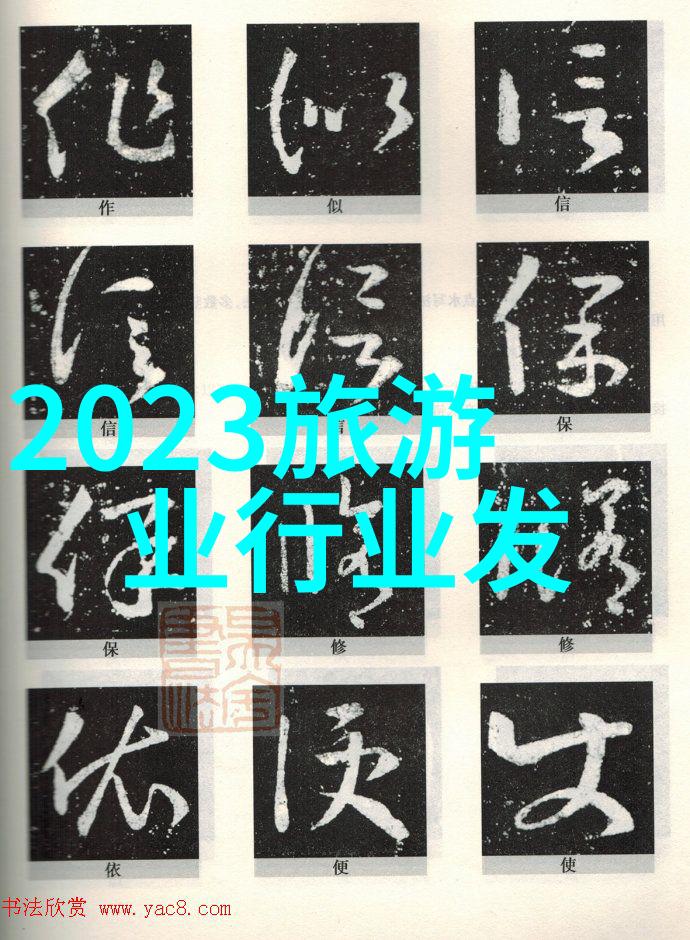 作 似 信
信 信 保
2023旅游
业行业发
保 修 修
依 便 使
书法欣赏 www.yac8.com